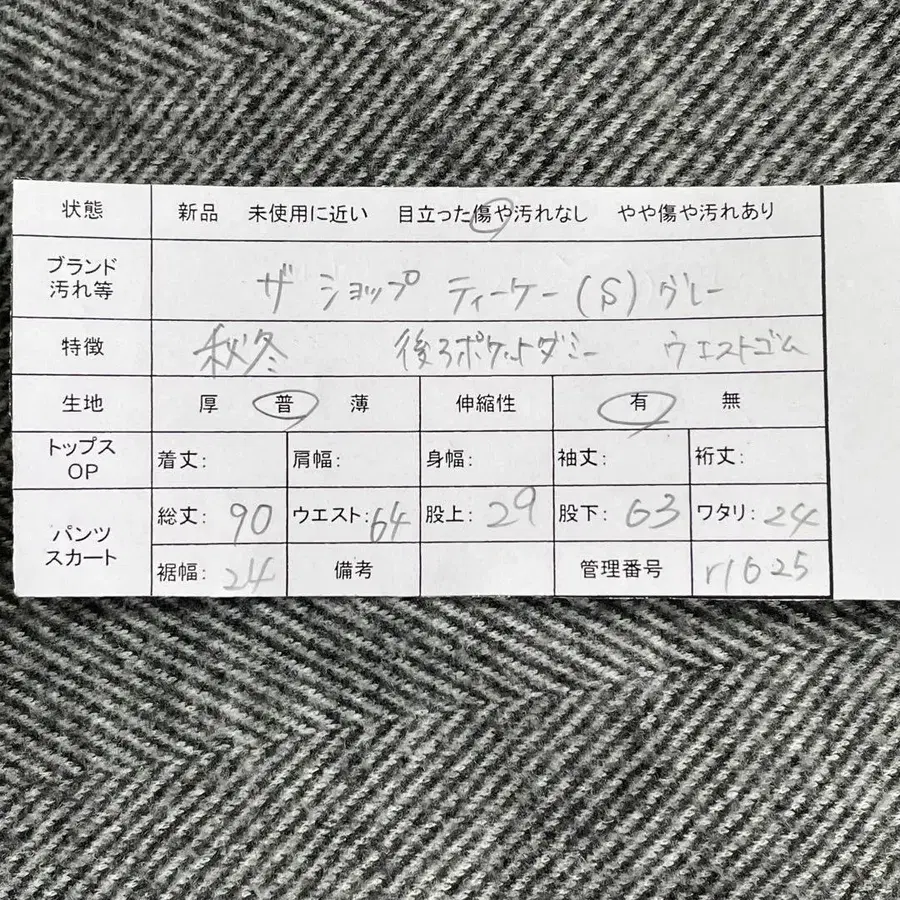 状態 新品 未使用に近い 目立った傷や汚れなし やや傷や汚れあり
ブランド
汚れ等 ザ ショップ ティーケー (S) グレー
特徴 秋冬 後ろポケットダミー ウエストゴム
生地 厚 普 薄 伸縮性 有 無
トップス
OP 着丈: 肩幅: 身幅: 袖丈: 裄丈:
パンツ
スカート 総丈: 90 ウエスト: 64 股上: 29 股下: 63 ワタリ: 24
裾幅: 24 備考 管理番号 r1625